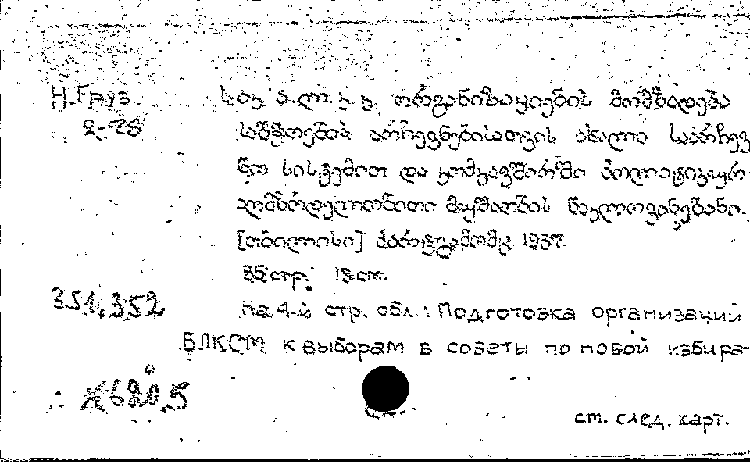 Н.Груз.
2-78
საკ. ა.ლ.კ.კ. ორგანიზაციების მომზადება
საბჭოების არჩევნებისათვის ახალი საარჩევ-
ნო სისტემით და კომკავშირში პოლიტიკურ-
აღმზრდელობითი მუშაობის ნაკლოვანებანი.
[თბილისი] პარტგამომც. 1937.
35 стр. 18 см.
351.352
На 4-й стр. обл.: Подготовка организаций
ВЛКСМ к выборам в советы по новой избира-
620.5
см. след. карт.